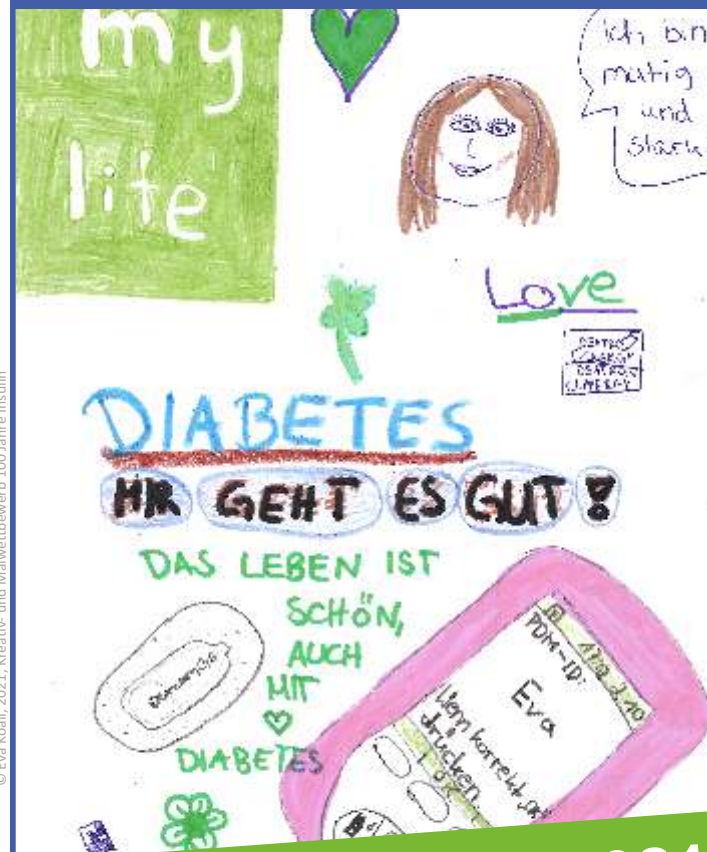 my
life
ich bin
mutig
und
stark
Love
DEXTRO
ENERGY
DEXTRO
ENERGY
DIABETES
MIR GEHT ES GUT!
DAS LEBEN IST
SCHÖN,
AUCH
MIT
DIABETES
PDM-ID:
Eva
Wenn korrekt,
drücken
© Eva Koall, 2021, Kreativ- und Malwettbewerb 100 Jahre Insulin